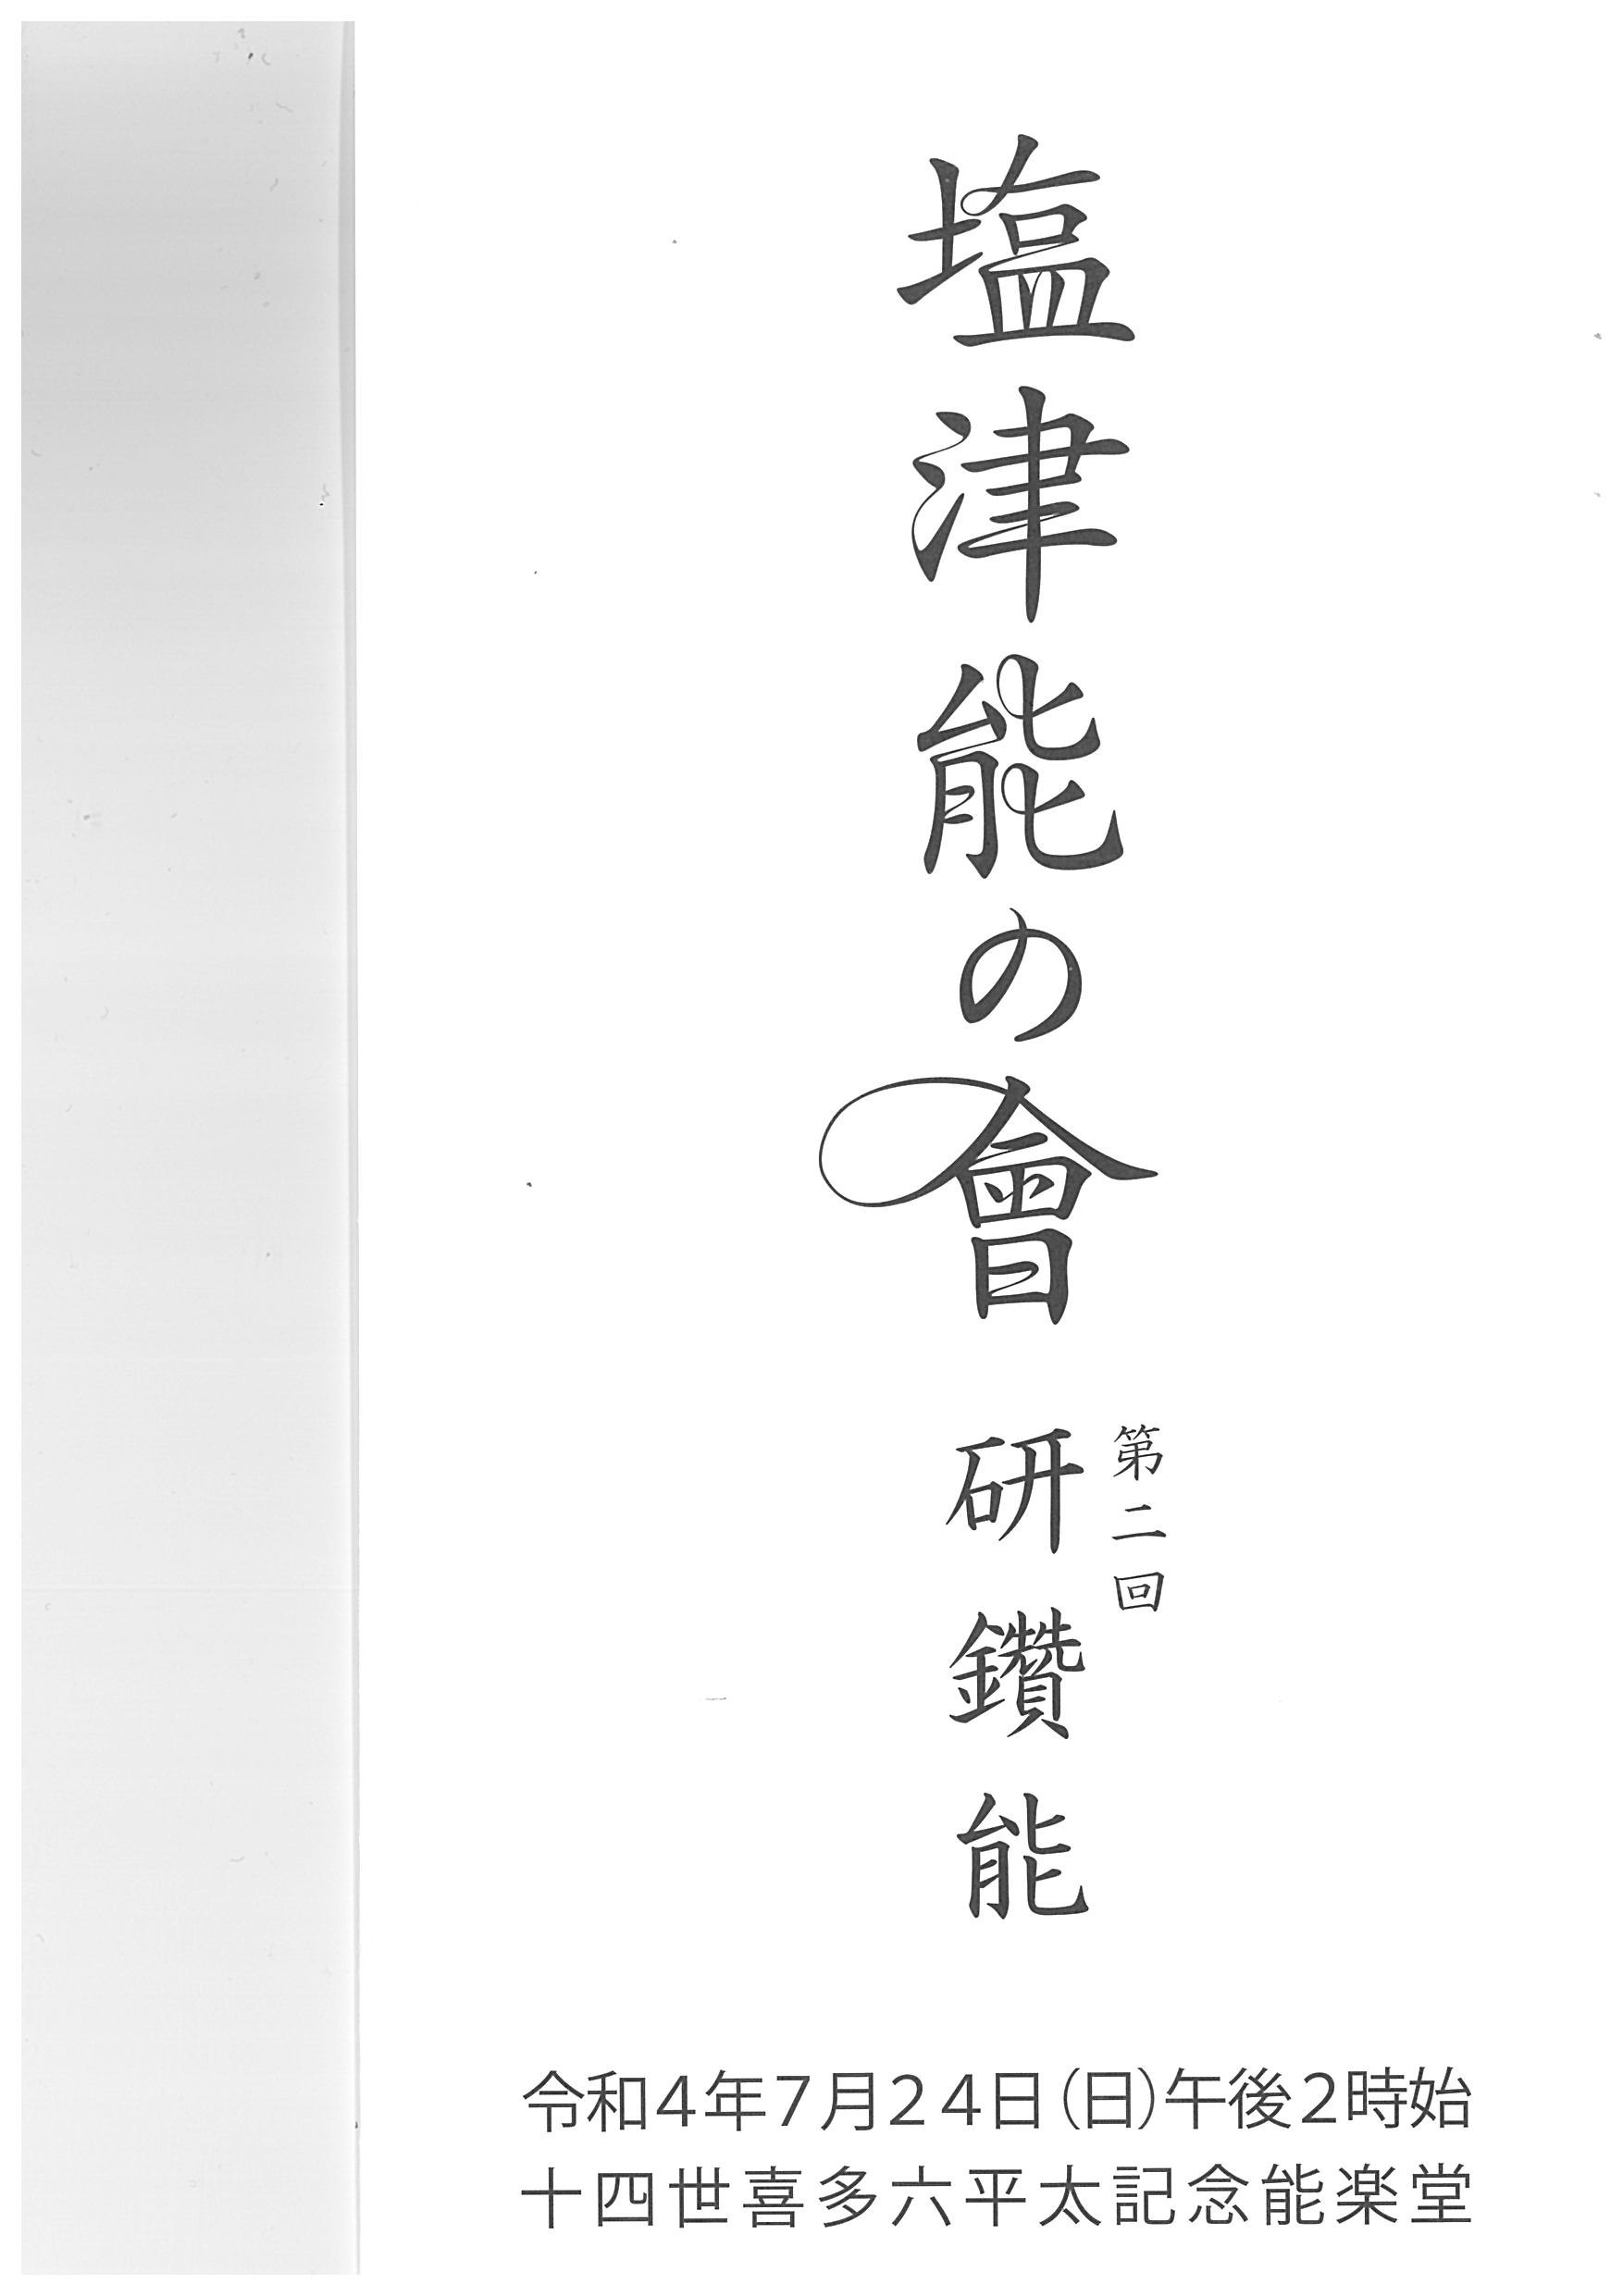 塩津能の會
第二回
研鑽能
令和4年7月24日(日)午後2時始
十四世喜多六平太記念能楽堂